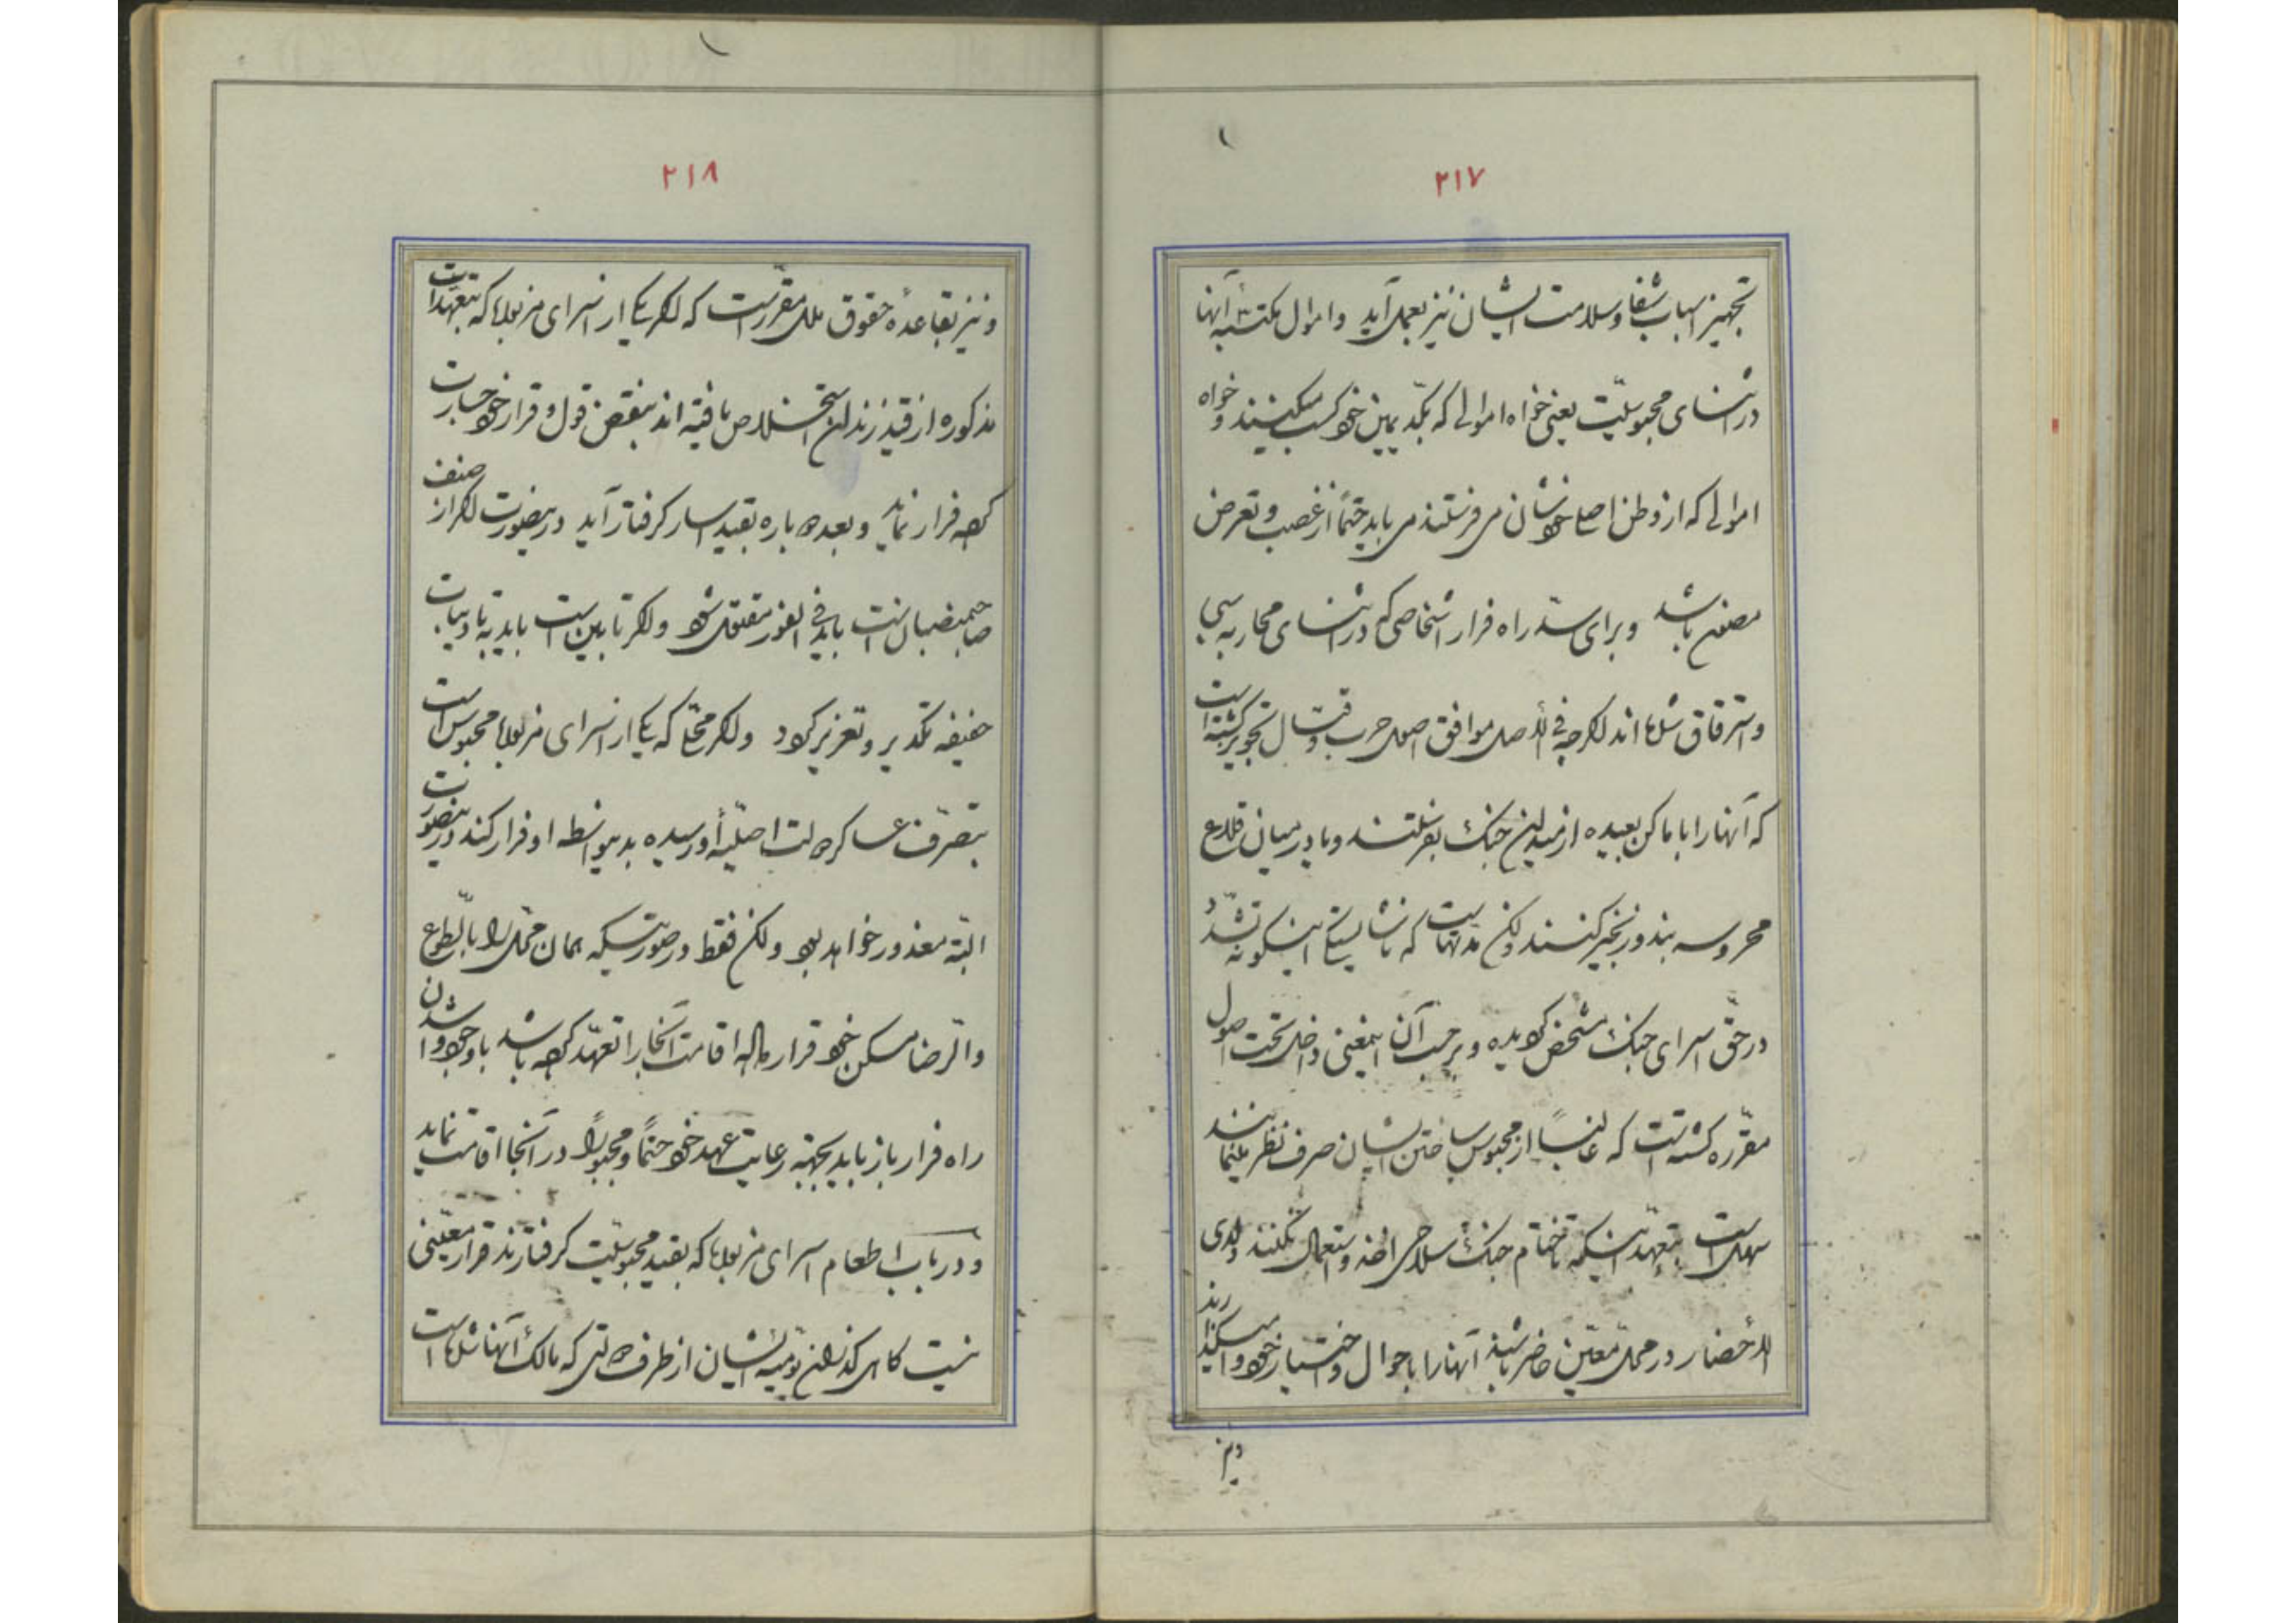 ۲۱۷
تجهیز اسباب شفا و سلامت ایشان نیز بعمل آید و اموال مکتسبهٔ آنها
در اثنای محبوسیّت یعنی خواه اموالی که بکدّ یمین خود کسب میکنند و خواه
اموالی که از وطن اصلی خودشان می فرستند می باید حتماً از غصب و تعرض
مصون باشد و برای سدّ راه فرار اشخاصی که در اثنای محاربه سبی
و استرقاق شده اند اگرچه فی الأصل موافق اصول حرب و قتال تجویز گشته است
که آنها را باماکن بعیده از میدان جنک بفرستند و یا در میان قلاع
محروسه بند و زنجیر کنند ولکن مدتهاست که ناشایستگی اینگونه تشدّد
در حقّ اسرای جنک مشخص گردیده و برحسب آن اینمعنی داخل تحت اصول
مقرّره گشته است که غالباً از محبوس ساختن ایشان صرف نظر مینمایند
سهل است بتعهّد اینکه تا ختام جنک سلاحی اخذ و استعمال نکنند ولدی
الأحضار در محلّ معیّن حاضر باشند آنها را باحوال و اختیار خود وا میگذارند
ونیز
۲۱۸
و نیز بقاعدهٔ حقوق ملل مقرّر است که اگر یکی از اسرای مزبوره که بتعهّدات
مذکوره از قید زندان استخلاص یافته اند بنقض قول و قرار خود جسارت
کرده فرار نماید و بعده دوباره بقید اسار گرفتار آید در اینصورت اگر از صنف
صاحبمنصبان است باید فی الفور مقتول شود و اگر تابین است باید به تأدیبات
خفیفه تکدیر و تعزیر گردد و اگر محلّی که یکی از اسرای مزبوره محبوس است
بتصرّف عساکر دولت اصلیّهٔ او رسیده بدینواسطه او فرار کند در اینصورت
البتّه معذور خواهد بود ولکن فقط در صورتیکه همان محلّ را بالطّوع
والرّضا مسکن خود قرار داده اقامت آنجا را تعهّد کرده باشد با وجود وا شدن
راه فرار باز باید بجهة رعایت عهد خود حتماً و مجبوراً در آنجا اقامت نماید
و در باب اطعام اسرای مزبوره که بقید محبوسیّت گرفتارند قرار معیّنی
نیست گاهی گذران یومیّهٔ ایشان از طرف دولتی که مالک آنها شده است